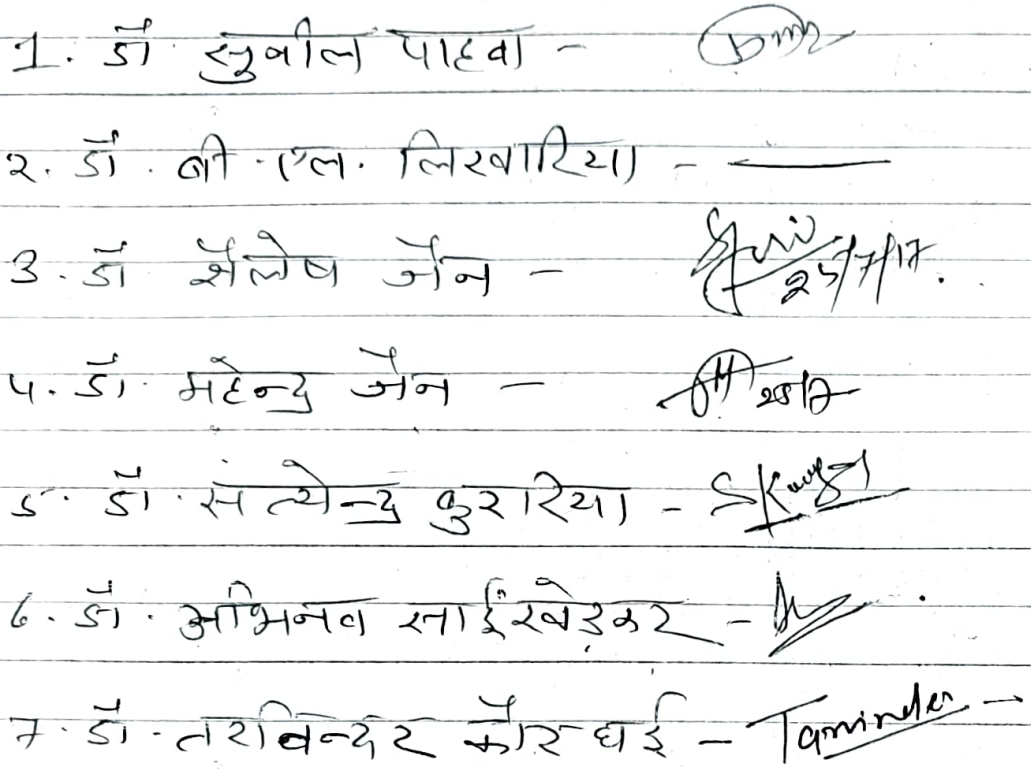 1. डॉ सुनील पाहवा -
२. डॉ. बी. एल. लिखारिया -
3. डॉ शैलेष जैन - 25/7/17.
५. डॉ. महेन्द्र जैन -
5. डॉ. सत्येन्द्र कुररिया -
6. डॉ. अभिनव साईखेड़कर -
7. डॉ. तरविन्दर कौर घई - Tarvinder